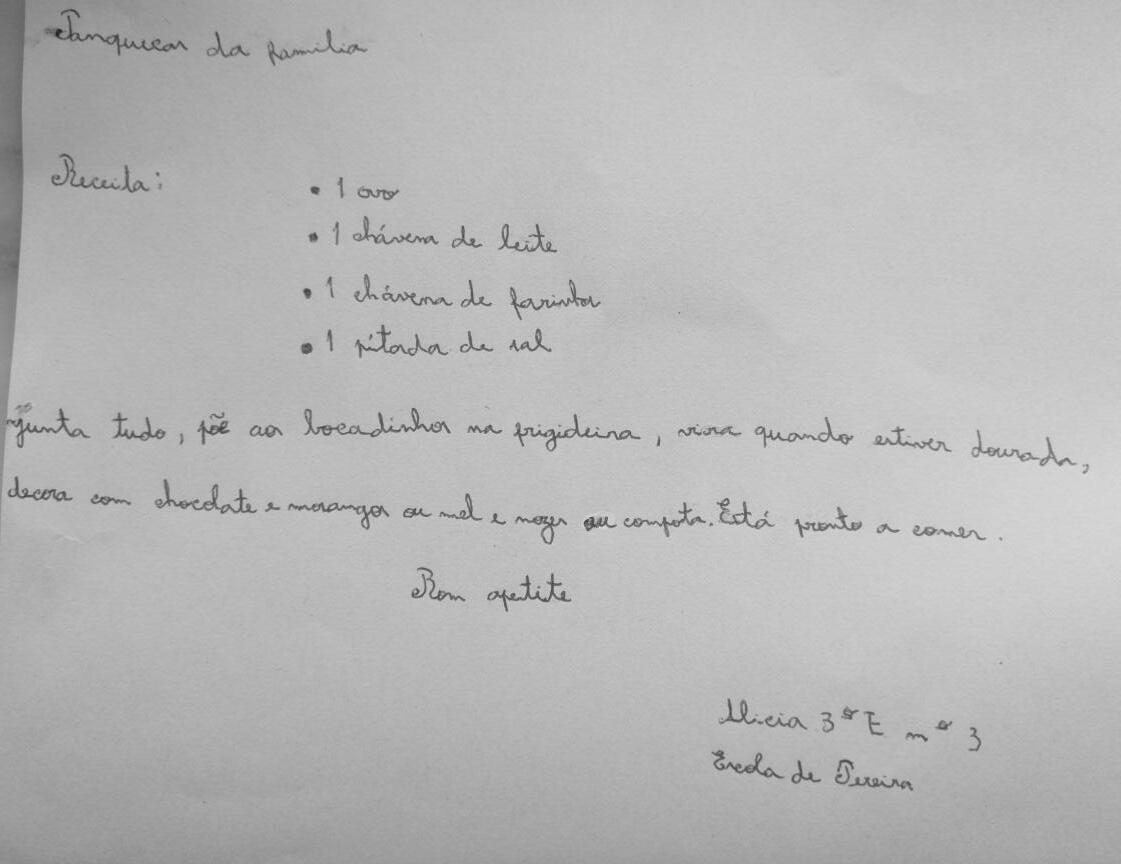 Panquecas da familia
Receita:
• 1 ovo
• 1 chávena de leite
• 1 chávena de farinha
• 1 pitada de sal
Junta tudo, põe aos bocadinhos na frigideira, vira quando estiver dourada,
decora com chocolate e morangos ou mel e nozes ou compota. Está pronto a comer.
Bom apetite
Alicia 3º E nº 3
Escola de Pereira